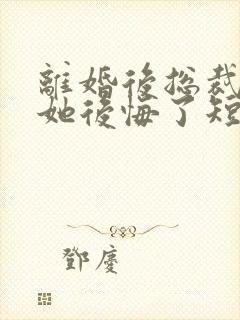 離婚後总裁
她後悔了短
鄧慶